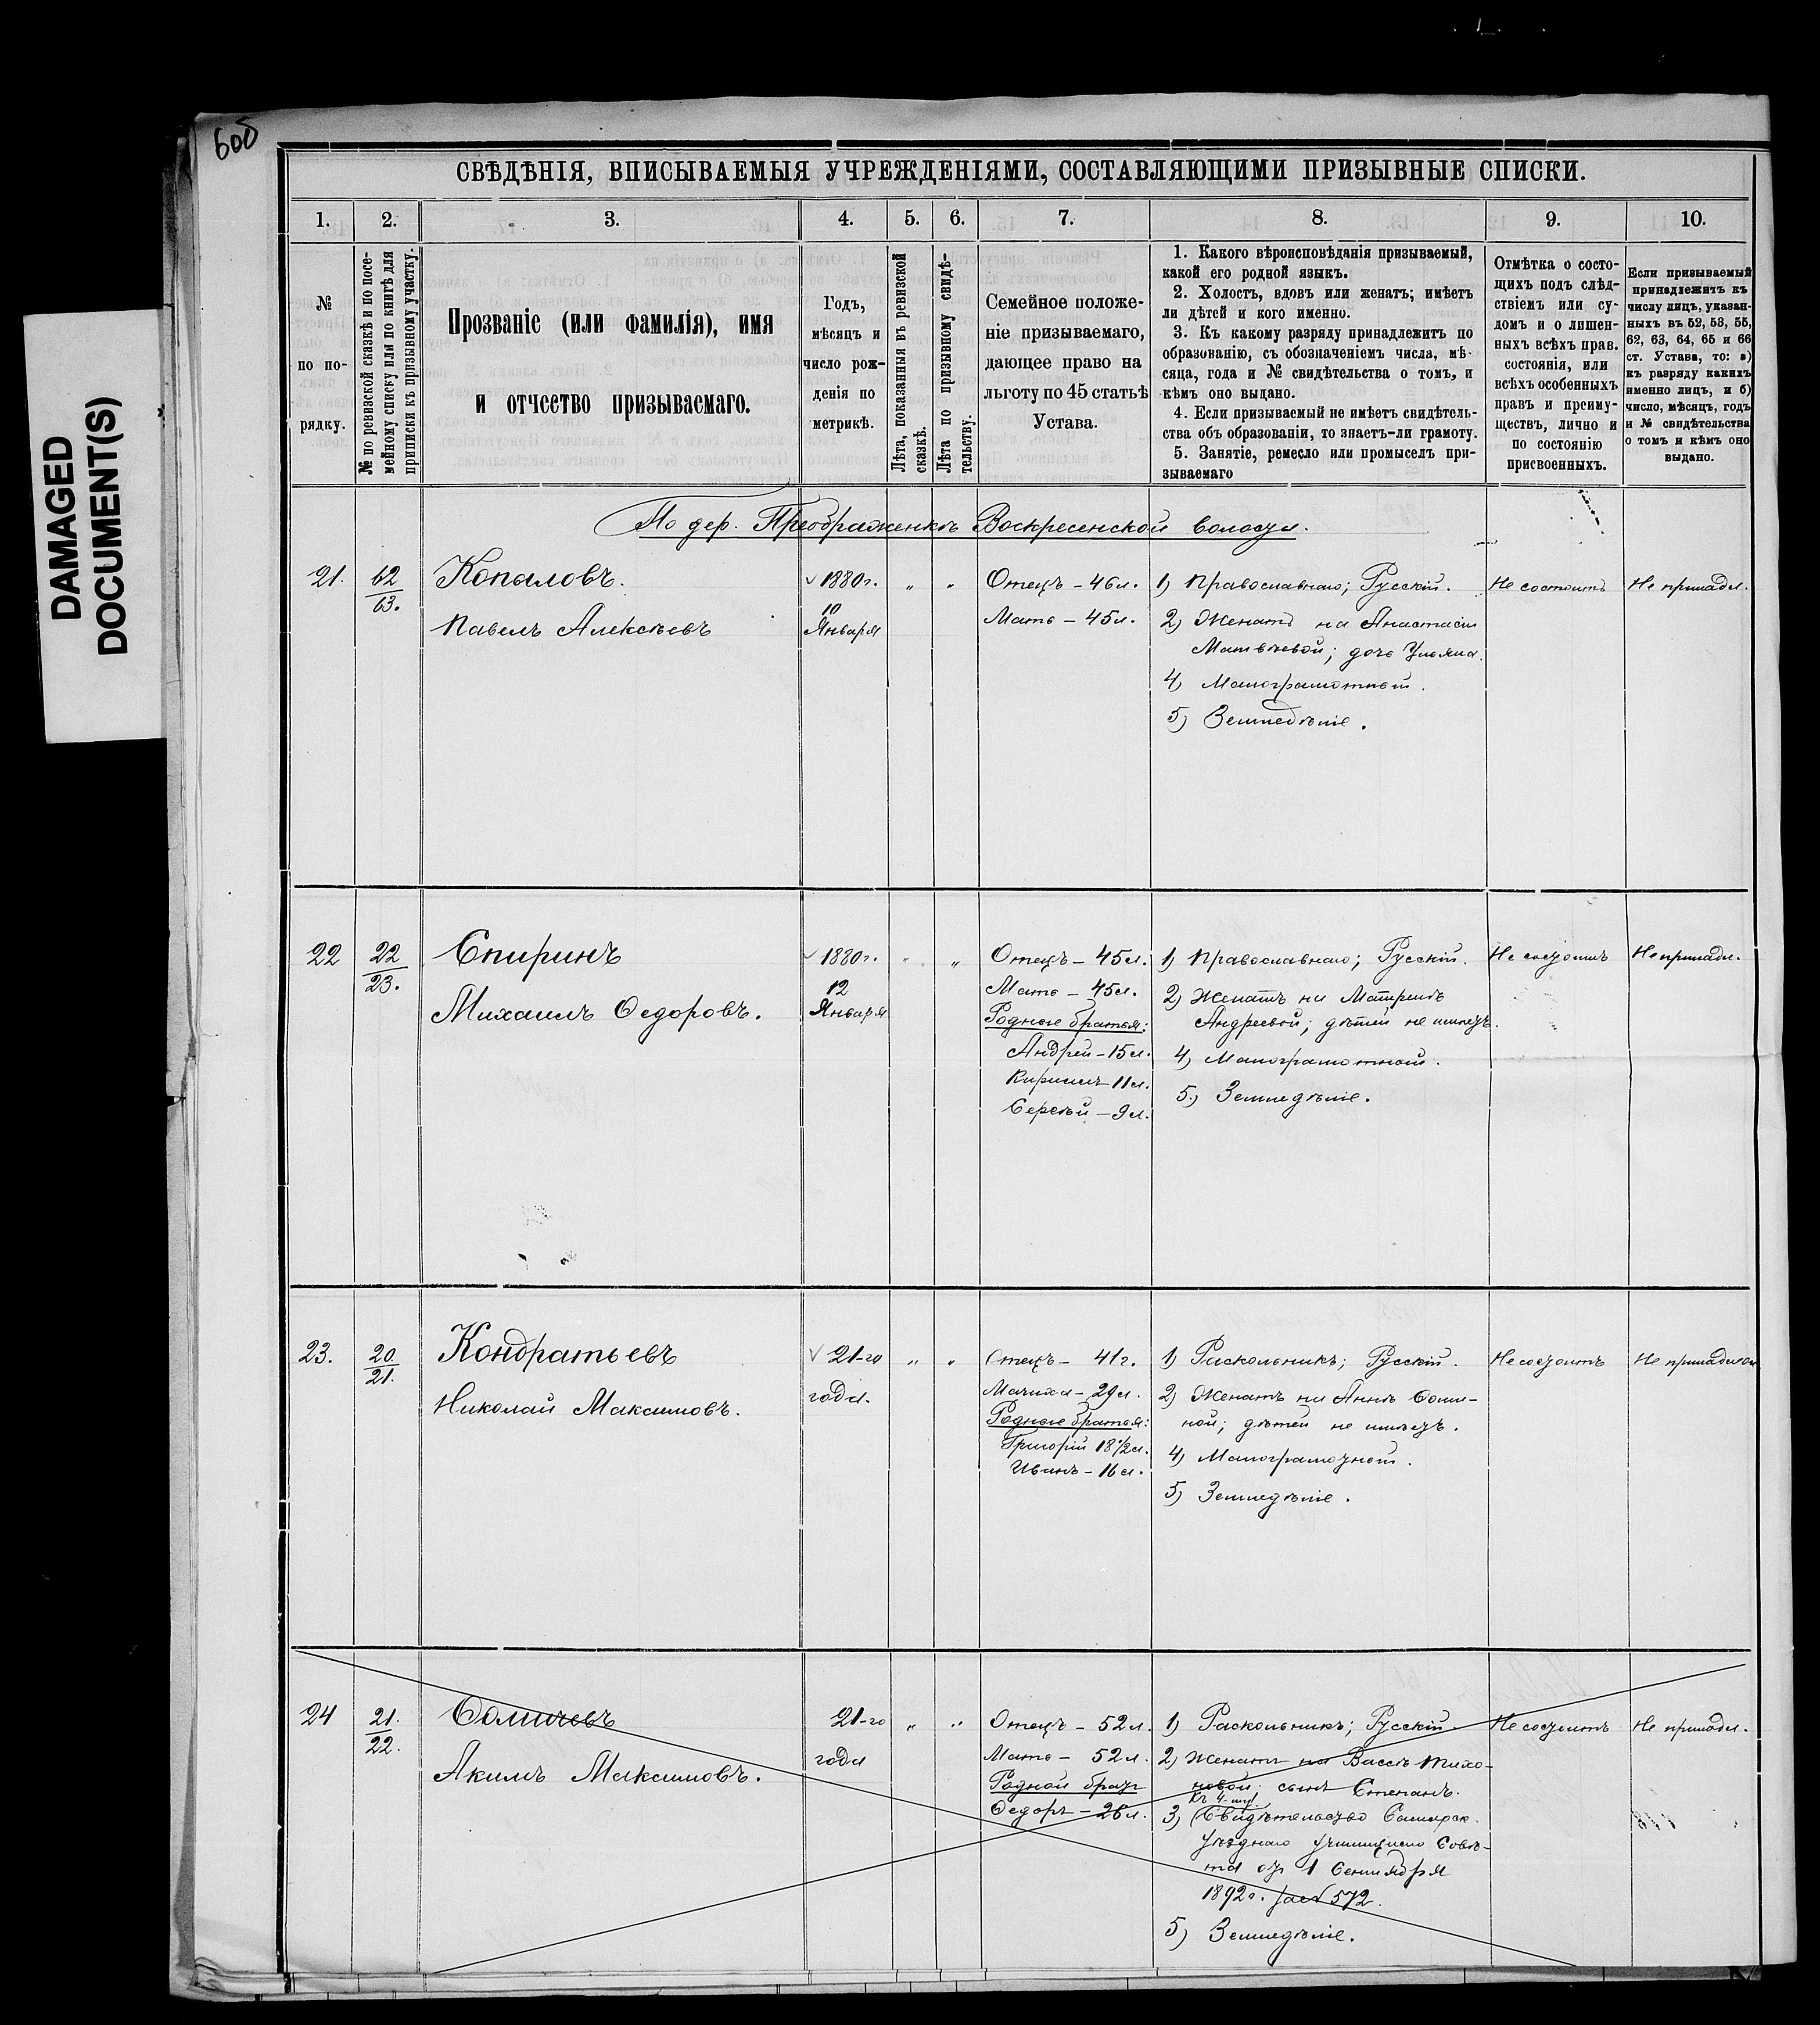 600
DAMAGED
DOCUMENT(S)
СВѢДѢНІЯ, ВПИСЫВАЕМЫЯ УЧРЕЖДЕНІЯМИ, СОСТАВЛЯЮЩИМИ ПРИЗЫВНЫЕ СПИСКИ.
1. 2. 3. 4. 5. 6. 7. 8. 9. 10.
№
по по-
рядку.
№ по ревизской сказкѣ и по посе-
мейному списку или по книгѣ для
приписки къ призывному участку.
Прозваніе (или фамилія), имя
и отчество призываемаго.
Годъ,
мѣсяцъ и
число рож-
денія по
метрикѣ.
Лѣта, показанныя въ ревизской
сказкѣ.
Лѣта по призывному свидѣ-
тельству.
Семейное положе-
ніе призываемаго,
дающее право на
льготу по 45 статьѣ
Устава.
1. Какого вѣроисповѣданія призываемый,
какой его родной языкъ.
2. Холостъ, вдовъ или женатъ; имѣетъ
ли дѣтей и кого именно.
3. Къ какому разряду принадлежитъ по
образованію, съ обозначеніемъ числа, мѣ-
сяца, года и № свидѣтельства о томъ, и
кѣмъ оно выдано.
4. Если призываемый не имѣетъ свидѣтель-
ства объ образованіи, то знаетъ-ли грамоту.
5. Занятіе, ремесло или промыселъ при-
зываемаго
Отмѣтка о состо-
щихъ подъ слѣд-
ствіемъ или су-
домъ и о лишен-
ныхъ всѣхъ прав.
состоянія, или
всѣхъ особенныхъ
правъ и преиму-
ществъ, лично и
по состоянію
присвоенныхъ.
Если призываемый
принадлежитъ къ
числу лицъ, указан-
ныхъ въ 52, 53, 55,
62, 63, 64, 65 и 66
ст. Устава, то: а)
къ разряду какихъ
именно лицъ, и б)
число, мѣсяцъ, годъ
и № свидѣтельства
о томъ и кѣмъ оно
выдано.
По дер. Преображенкѣ Воскресенской волости.
21.
62
63.
Копыловъ.
Павелъ Алексѣевъ
1880 г.
10
Января
" "
Отецъ – 46 л.
Мать – 45 л.
1) Православнаго; Русскій.
2) Женатъ на Анастасіи
Матвѣевой; дочь Ульяна.
4) Малограмотный.
5) Земледѣліе.
Не состоитъ
Не принадл.
22
22
23.
Спиринъ
Михаилъ Ѳедоровъ.
1880 г.
12
Января
" "
Отецъ – 45 л.
Мать – 45 л.
Родные братья:
Андрей – 15 л.
Кириллъ 11 л.
Сергѣй – 9 л.
1) Православнаго; Русскій.
2) Женатъ на Матренѣ
Андреевой; дѣтей не имѣетъ.
4) Малограмотный.
5) Земледѣліе.
Не состоитъ
Не принадл.
23.
20
21.
Кондратьевъ
Николай Максимовъ.
21-го
года.
" "
Отецъ – 41 г.
Мачиха – 29 л.
Родные братья:
Григорій 18 1/2 л.
Иванъ – 16 л.
1) Раскольникъ; Русскій.
2) Женатъ на Аннѣ
ной; дѣтей не имѣетъ.
4) Малограмотный.
5) Земледѣліе.
Не состоитъ
Не принадл.
24
21.
22.
Акимъ Максимовъ.
21-го
года
" "
Отецъ – 52 л.
Мать – 52 л.
Родной братъ
Ѳедоръ – 26 л.
1) Раскольникъ; Русскій.
2) Женатъ на Вассѣ Тихо-
новой; сынъ Степанъ.
3) Свидѣтельство Самарск.
Уѣзднаго Училищнаго Совѣ-
та отъ 1 Сентября
1892 г. за № 572.
5) Земледѣліе.
Не состоитъ
Не принадл.